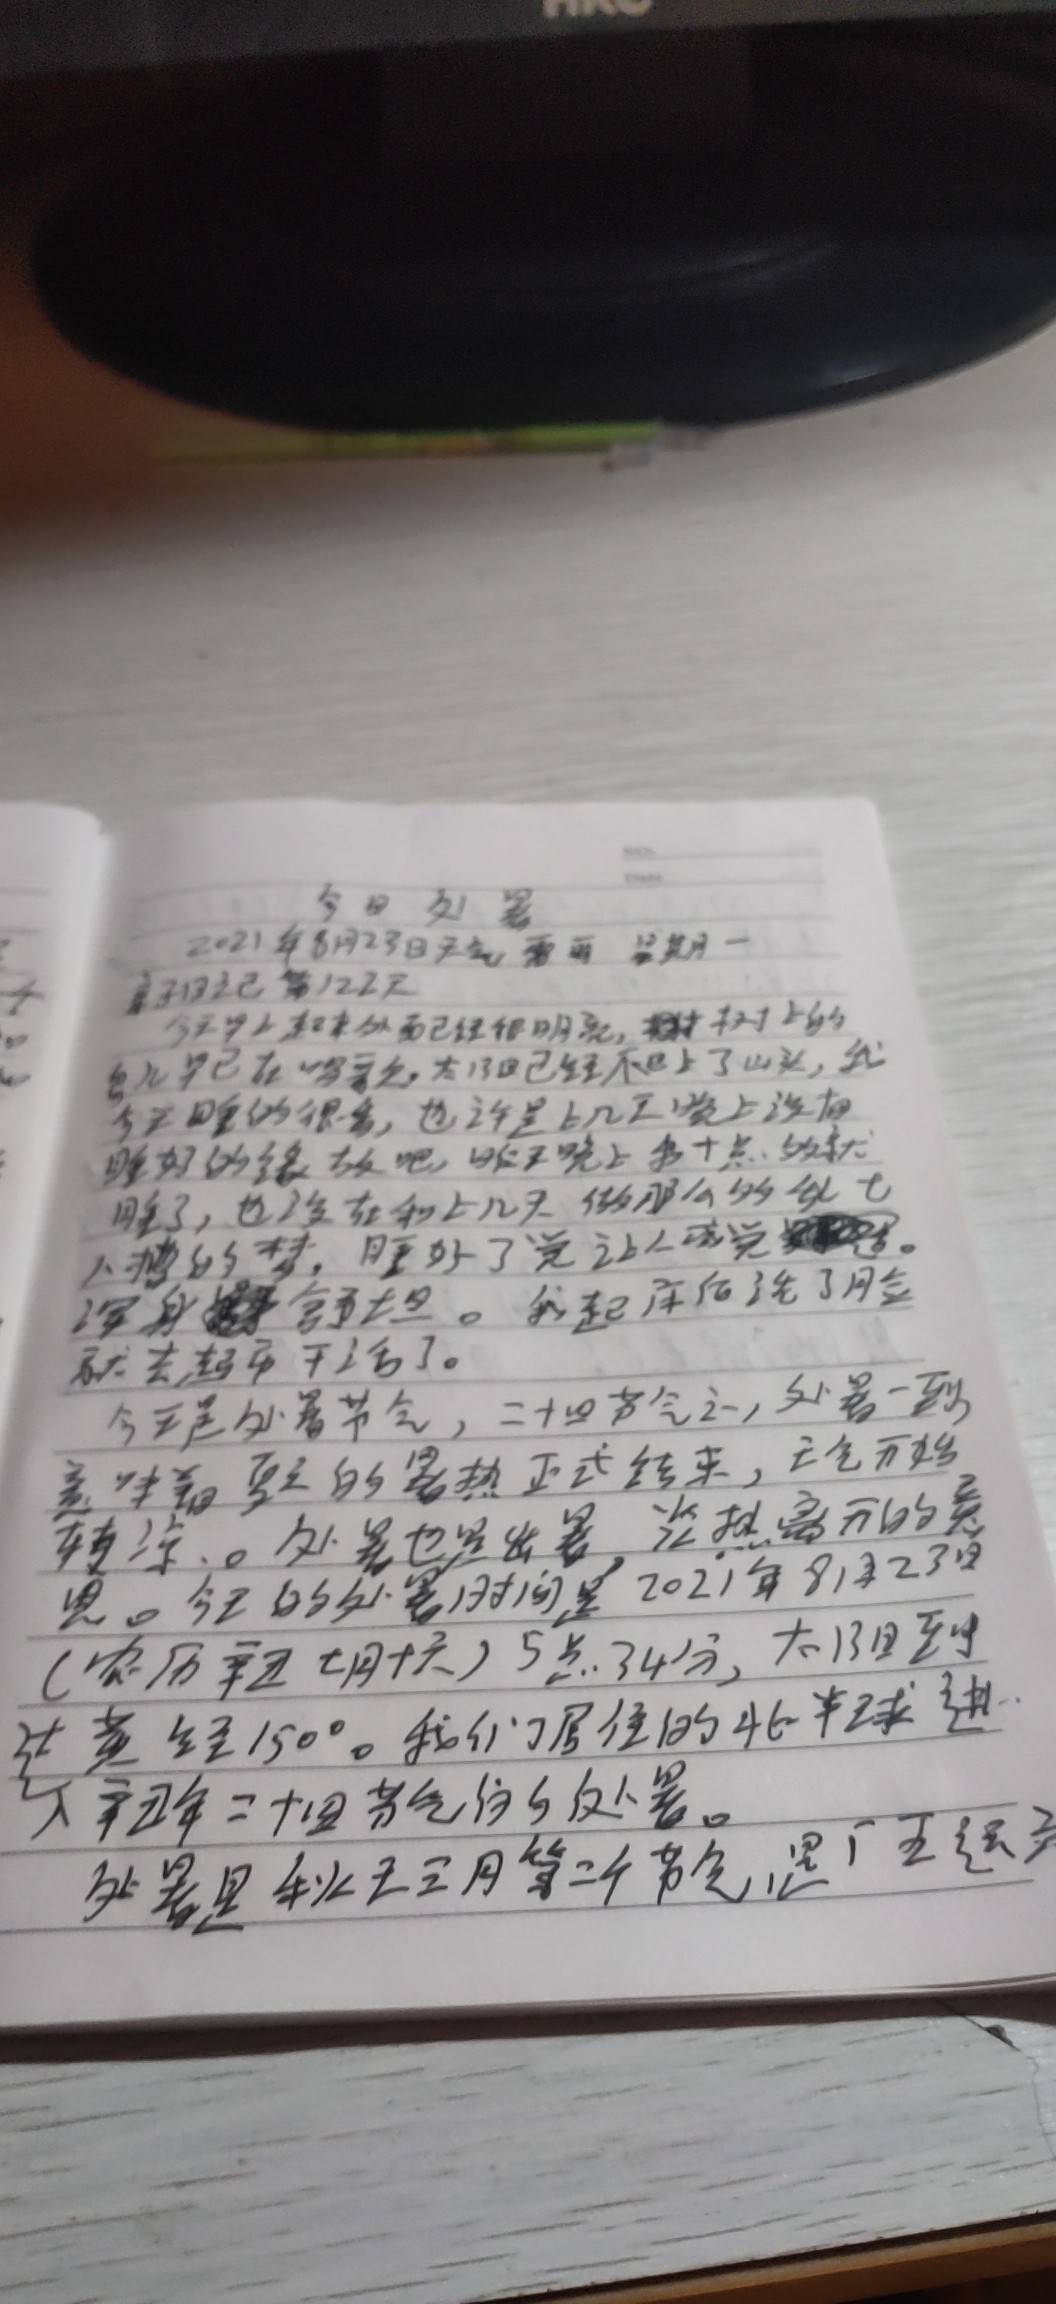 HKC
No.
Date
今日处暑
2021年8月23日天气雷雨 星期一
亲子日记第122天
今天早上起来外面已经很明亮，树上的
鸟儿早已在唱歌，太阳已经不日上了山头，我
今天睡的很香，也许是上几天晚上没有
睡好的缘故吧，昨天晚上我十点的就
睡了，也没在和上几天做那么的乱七
八糟的梦，睡好了觉让人感觉
浑身舒坦。我起床后洗了脸
就去超市干活了。
今天是处暑节气，二十四节气之一，处暑一到
意味着夏天的暑热正式结束，天气开始
转凉。处暑也是出暑，炎热离开的意
思。今天的处暑时间是2021年8月23日
（农历辛丑七月十六）5点34分，太阳到
达黄经150°。我们居住的北半球进
入辛丑年二十四节气的处暑。
处暑是秋天三月第二个节气，